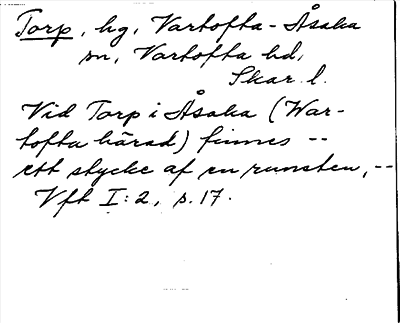 Torp, hg, Vartofta-Åsaka
sn, Vartofta hd,
Skar. l.
Vid Torp i Åsaka (War-
tofta härad) finnes --
ett stycke af en runsten, --
Vft I:2, s. 17.